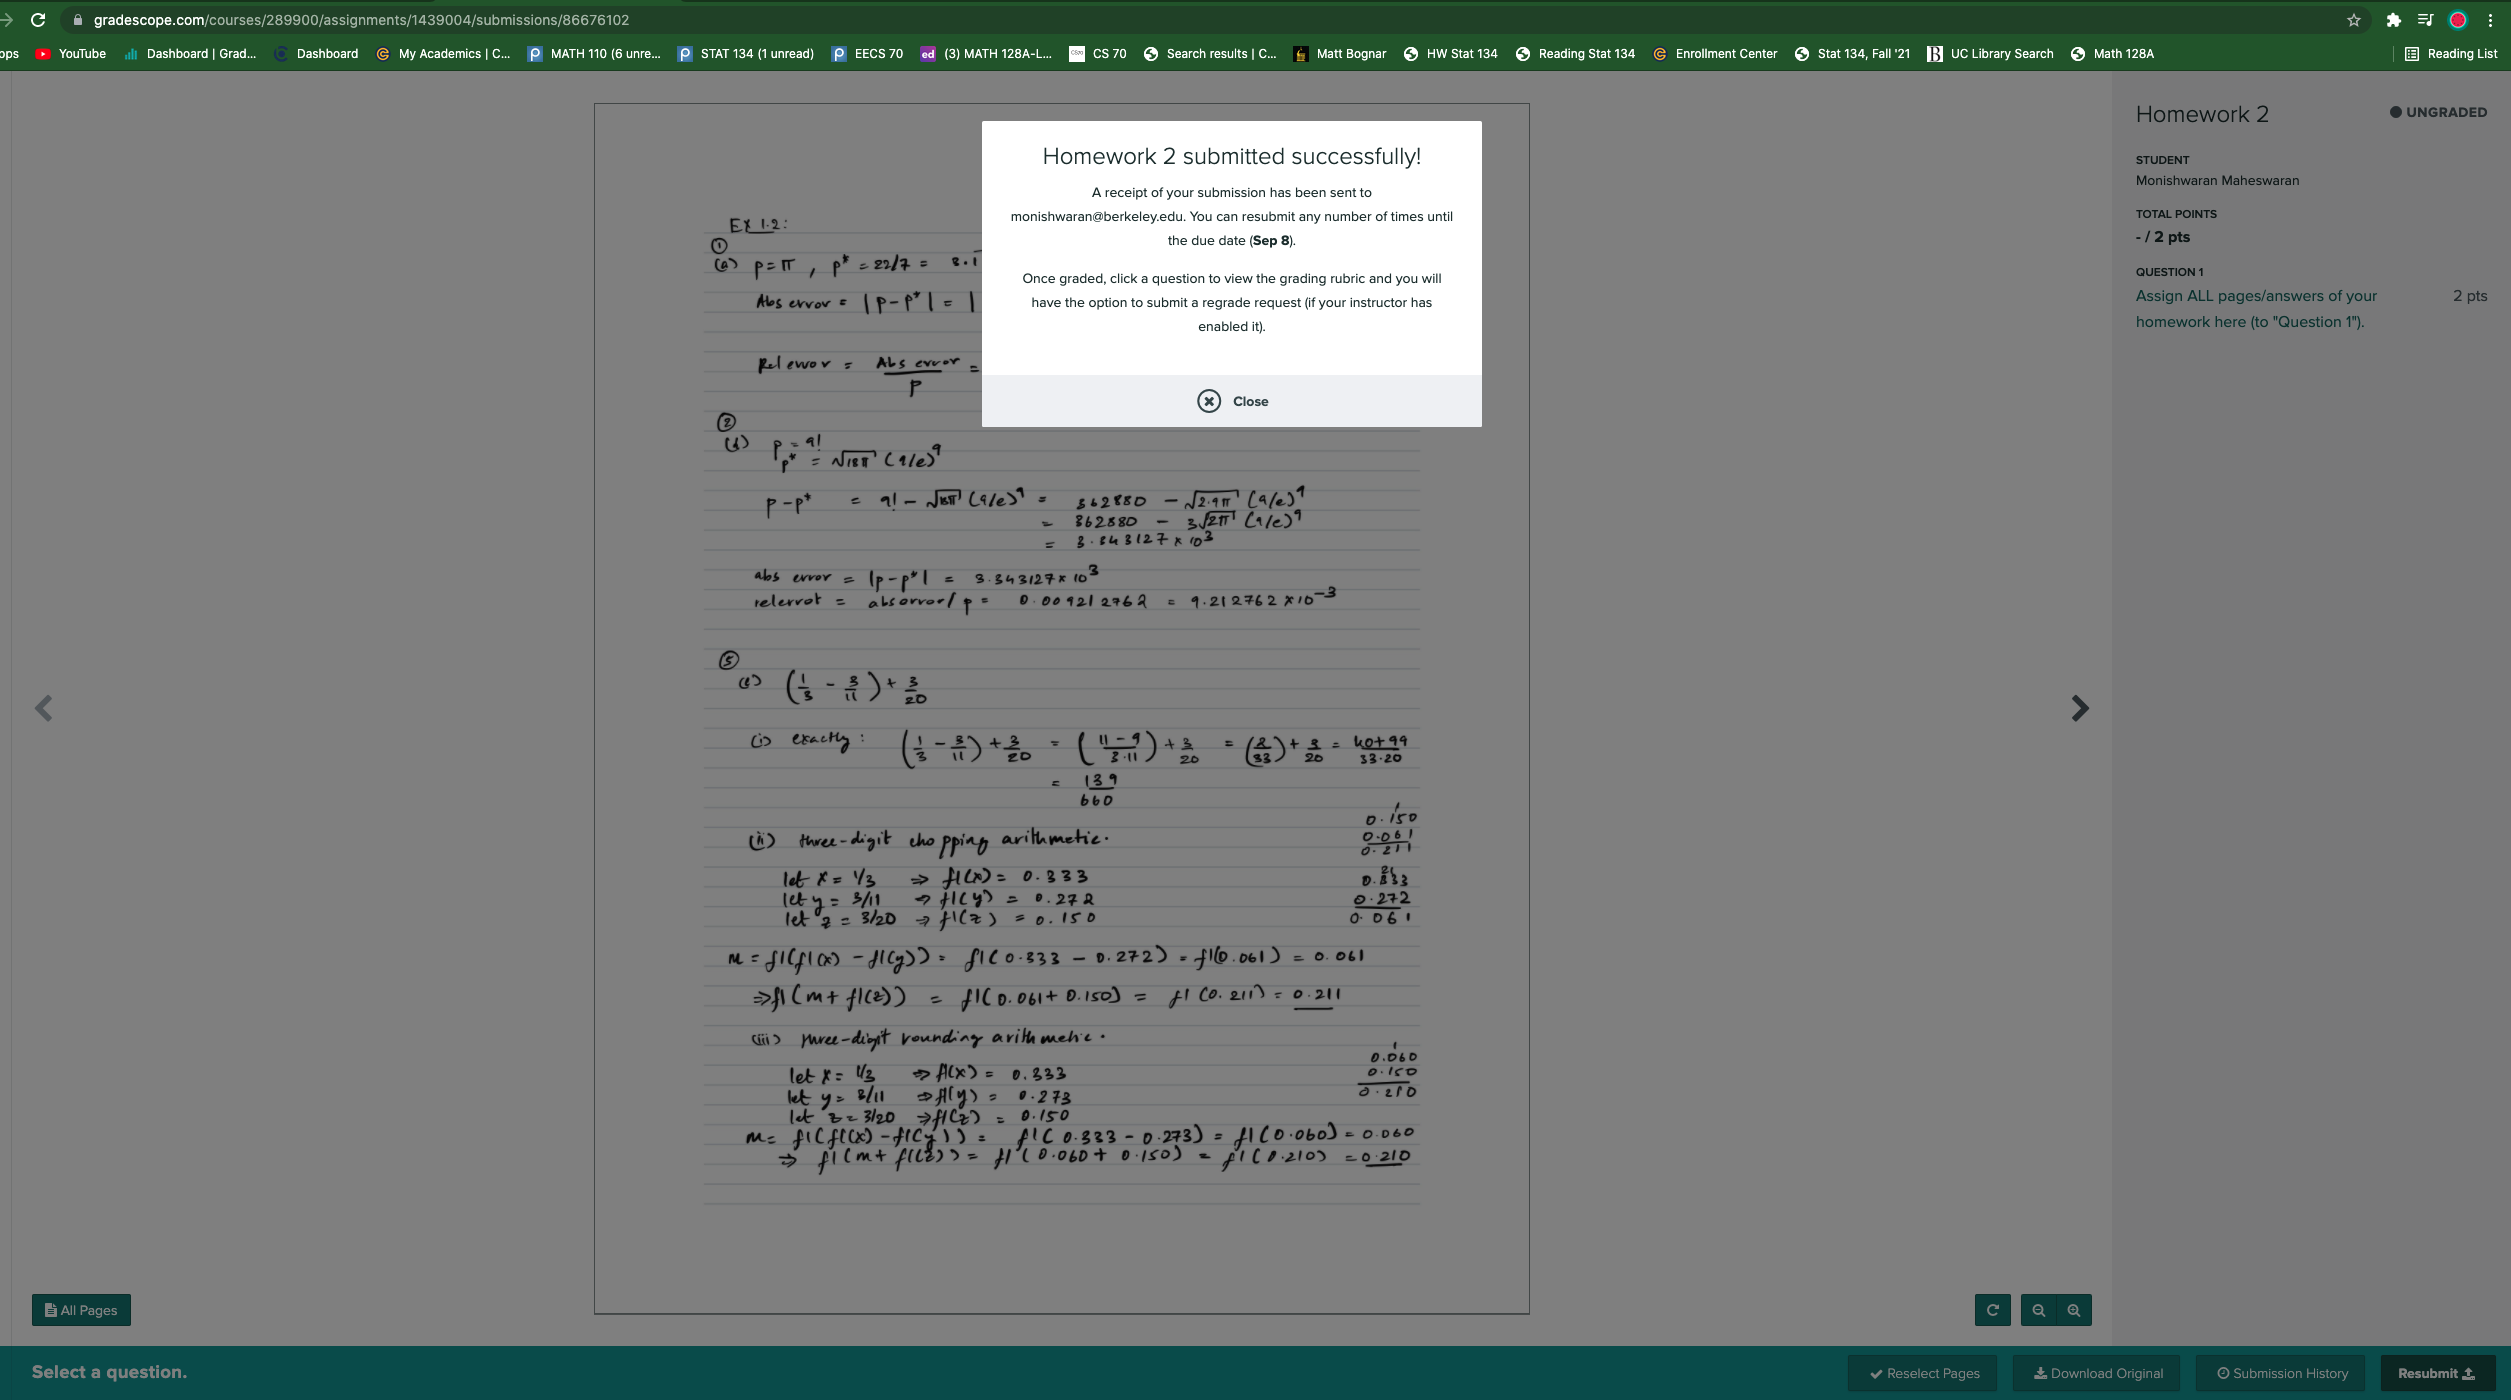 gradescope.com/courses/289900/assignments/1439004/submissions/86676102
ops YouTube Dashboard | Grad... Dashboard My Academics | C... MATH 110 (6 unre... STAT 134 (1 unread) EECS 70 (3) MATH 128A-L... CS 70 Search results | C... Matt Bognar HW Stat 134 Reading Stat 134 Enrollment Center Stat 134, Fall '21 UC Library Search Math 128A Reading List
Homework 2 submitted successfully!
A receipt of your submission has been sent to
monishwaran@berkeley.edu. You can resubmit any number of times until
the due date (Sep 8).
Once graded, click a question to view the grading rubric and you will
have the option to submit a regrade request (if your instructor has
enabled it).
Close
Ex 1.2:
①
(a) p = π , p* = 22/7 = 3.1
Abs error = |p-p*| = |
Rel error = Abs error =
p
②
(d) p = 9!
p* = √18π (9/e)⁹
p-p* = 9! - √18π (9/e)⁹ = 362880 - √2·9π (9/e)⁹
= 362880 - 3√2π (9/e)⁹
= 3.343127 × 10³
abs error = |p-p*| = 3.343127 × 10³
relerrot = abs error/p = 0.009212762 = 9.212762 × 10⁻³
⑤
(e) (1/3 - 3/11) + 3/20
(i) exactly : (1/3 - 3/11) + 3/20 = (11-9/3·11) + 3/20 = (2/33) + 3/20 = 40+99/33·20
= 139/660
(ii) three-digit chopping arithmetic.
0.150
0.061
0.211
let x = 1/3 ⇒ fl(x) = 0.333
let y = 3/11 ⇒ fl(y) = 0.272
let z = 3/20 ⇒ fl(z) = 0.150
0.333
0.272
0.061
m = fl(fl(x) - fl(y)) = fl(0.333 - 0.272) = fl(0.061) = 0.061
⇒ fl(m + fl(z)) = fl(0.061 + 0.150) = fl(0.211) = 0.211
(iii) three-digit rounding arithmetic.
0.060
0.150
0.210
let x = 1/3 ⇒ fl(x) = 0.333
let y = 3/11 ⇒ fl(y) = 0.273
let z = 3/20 ⇒ fl(z) = 0.150
m = fl(fl(x) - fl(y)) = fl(0.333 - 0.273) = fl(0.060) = 0.060
⇒ fl(m + fl(z)) = fl(0.060 + 0.150) = fl(0.210) = 0.210
Homework 2 UNGRADED
STUDENT
Monishwaran Maheswaran
TOTAL POINTS
- / 2 pts
QUESTION 1
Assign ALL pages/answers of your 2 pts
homework here (to "Question 1").
All Pages
Select a question. Reselect Pages Download Original Submission History Resubmit